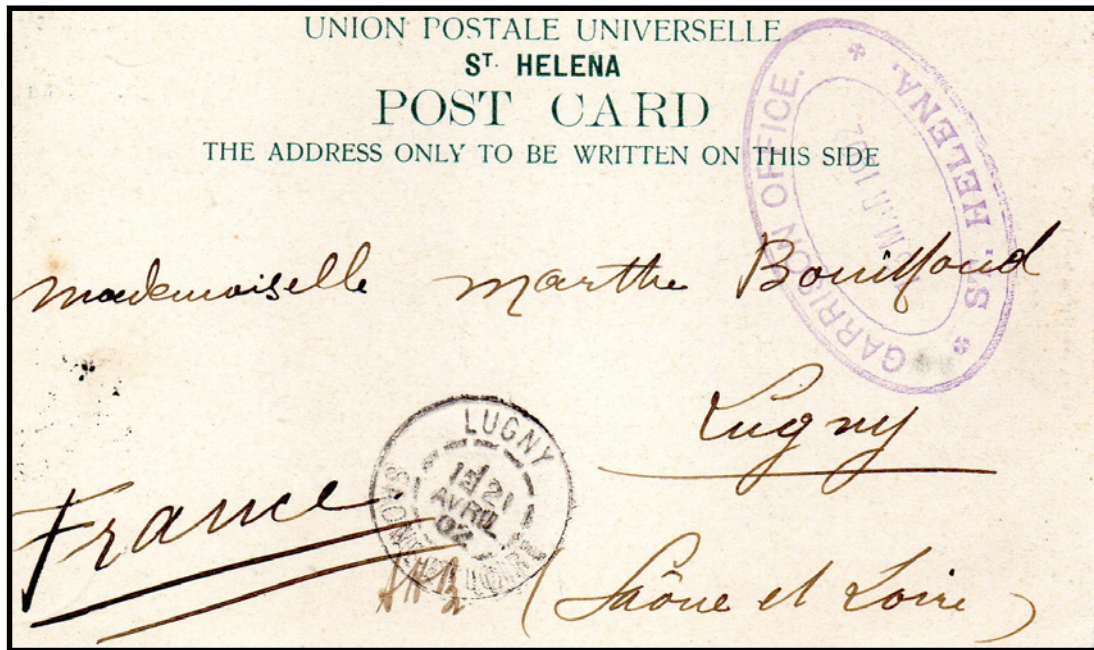 UNION POSTALE UNIVERSELLE
ST. HELENA
POST CARD
THE ADDRESS ONLY TO BE WRITTEN ON THIS SIDE
GARRISON OFFICE.
* ST. HELENA. *
MAR 1902
Mademoiselle Marthe Bouilloud
Lugny
France
(Saône et Loire)
LUGNY
21
AVRIL
02
SAONE ET LOIRE